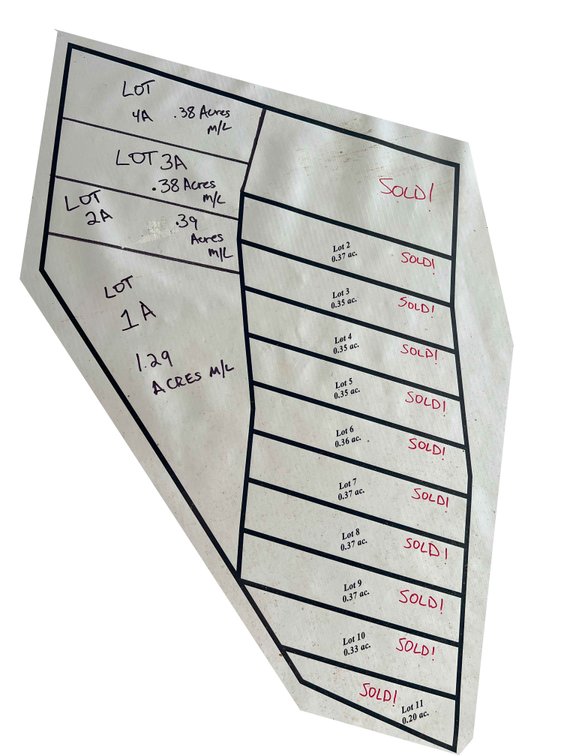 LOT
4A .38 Acres
M/L
LOT 3A
.38 Acres
M/L
LOT
2A
.39
Acres
M/L
LOT
1A
1.29
ACRES M/L
SOLD!
Lot 2
0.37 ac.
SOLD!
Lot 3
0.35 ac.
SOLD!
Lot 4
0.35 ac.
SOLD!
Lot 5
0.35 ac.
SOLD!
Lot 6
0.36 ac.
SOLD!
Lot 7
0.37 ac.
SOLD!
Lot 8
0.37 ac.
SOLD!
Lot 9
0.37 ac.
SOLD!
Lot 10
0.33 ac.
SOLD!
SOLD!
Lot 11
0.20 ac.